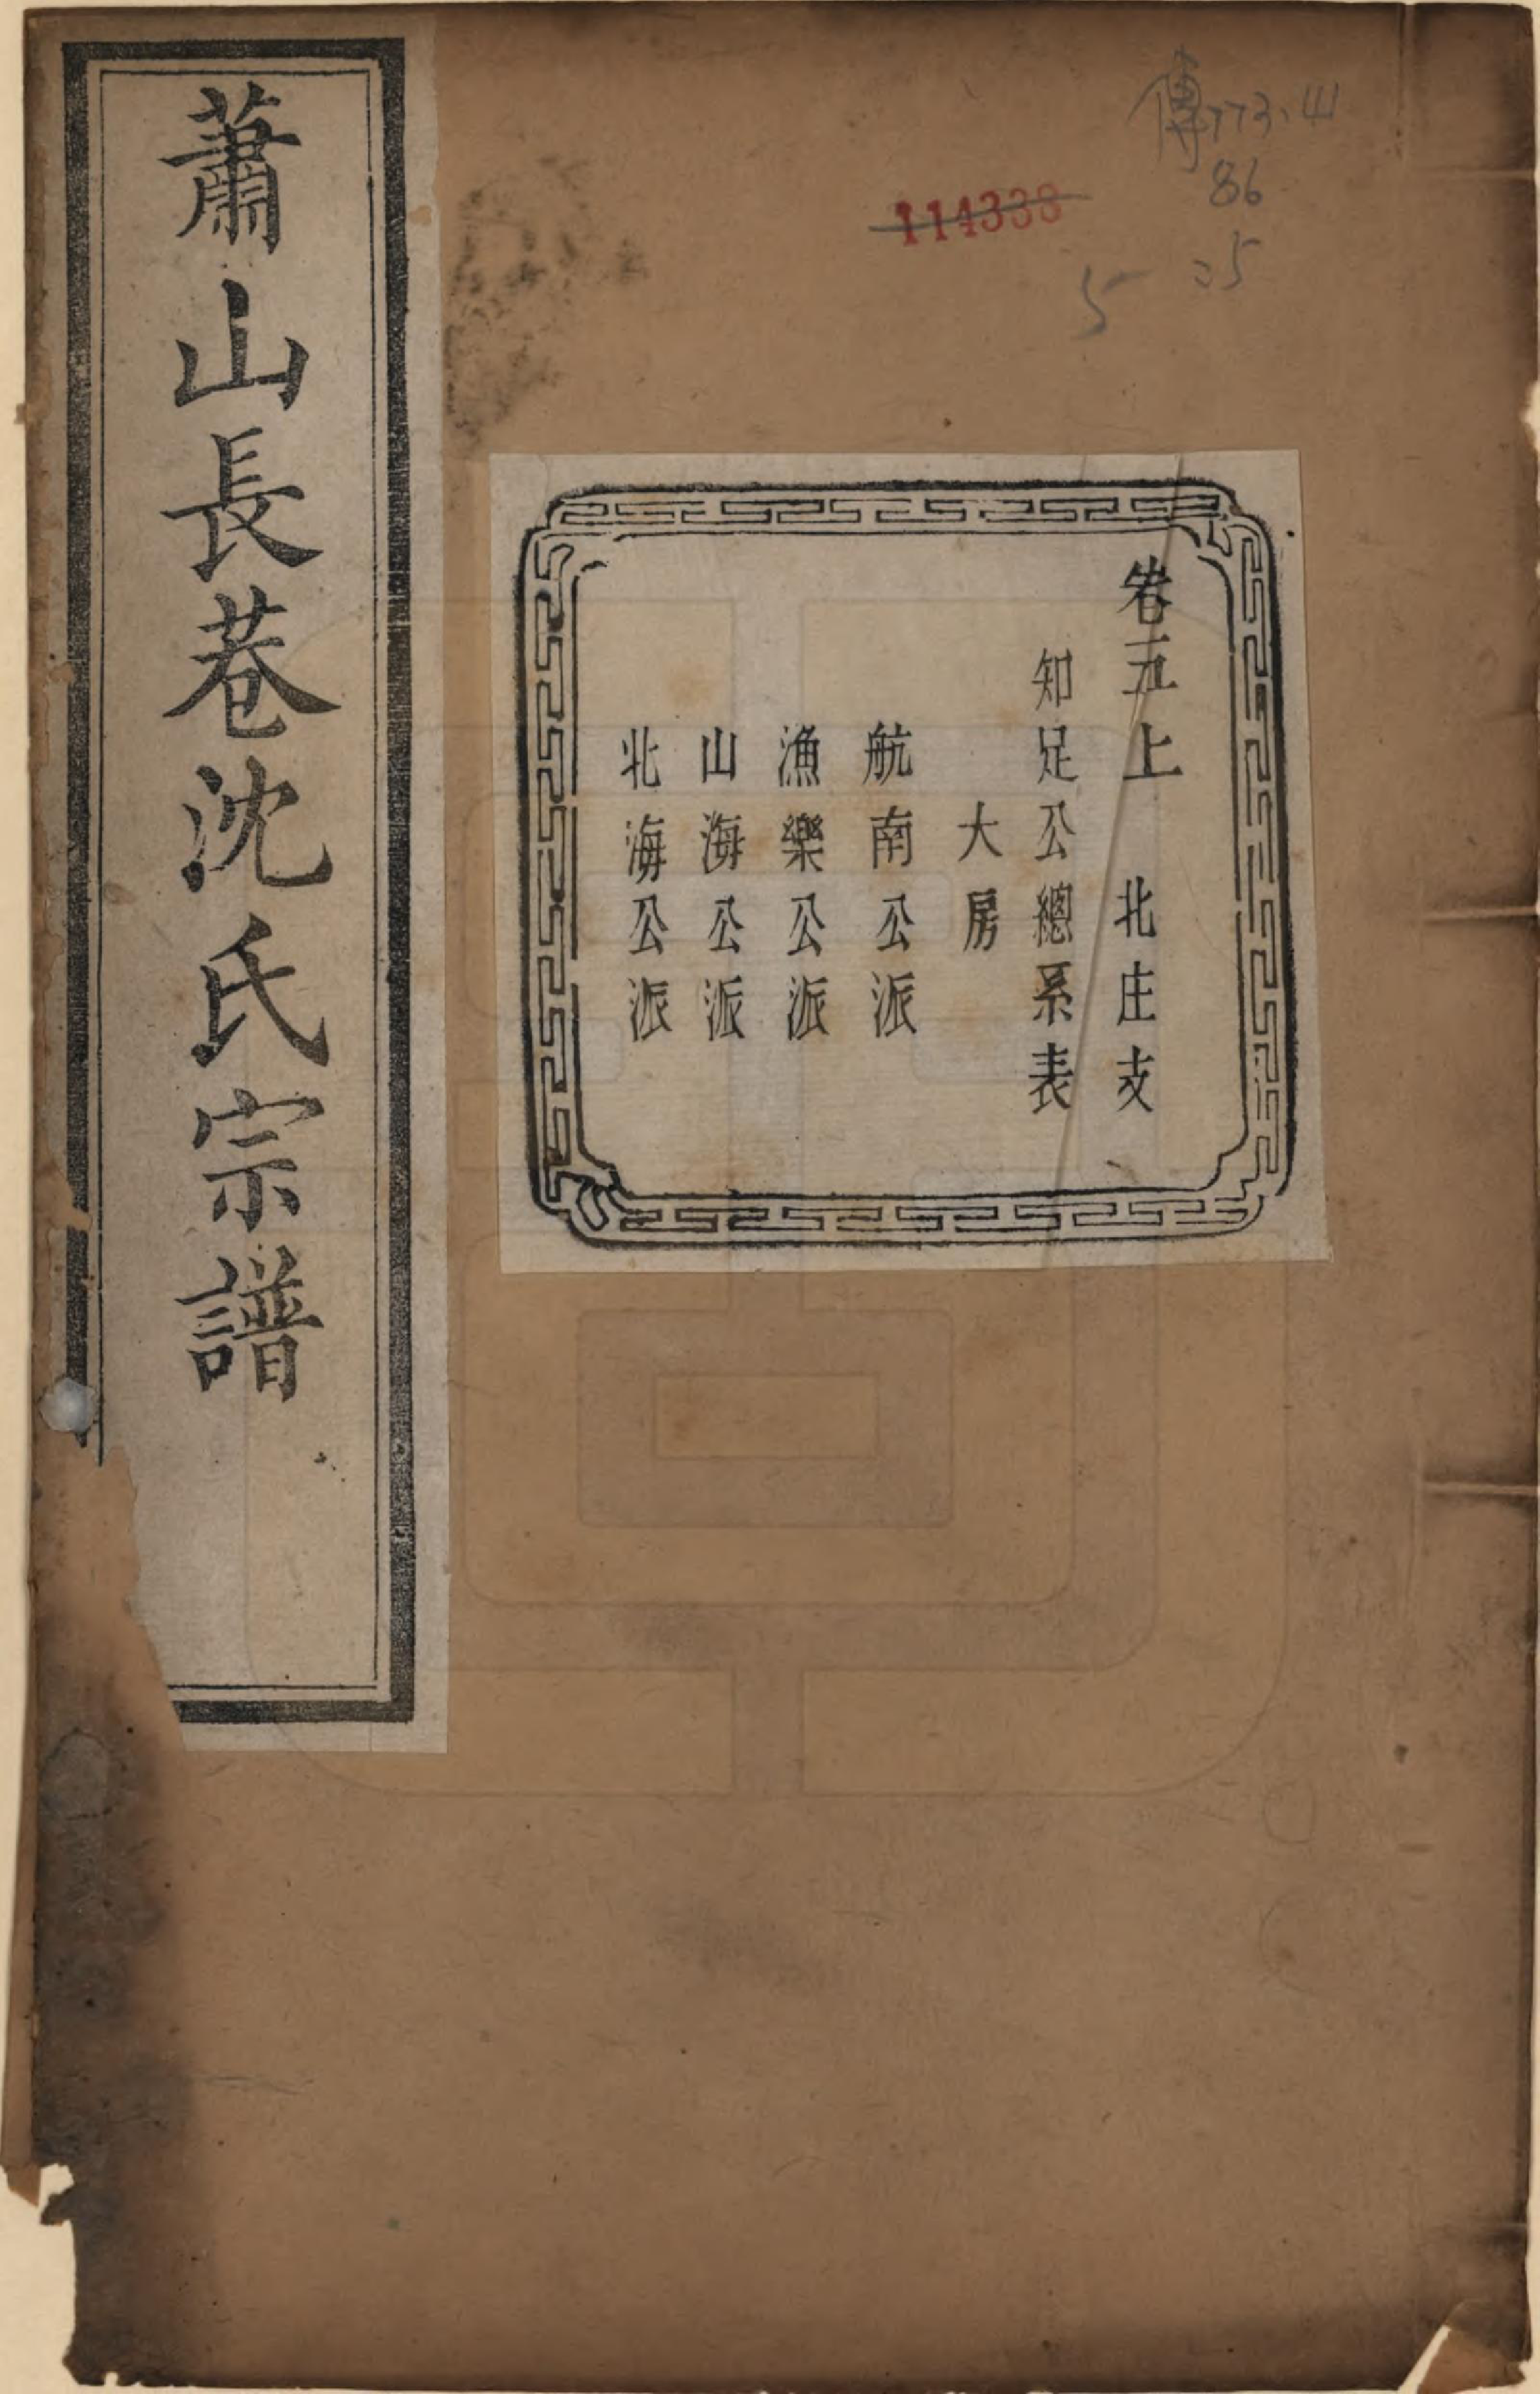 蕭山長巷沈氏宗譜
傳773.41
86
:5
5
114338
卷五上 北庄支
知足公總系表
大房
航南公派
漁樂公派
山海公派
北海公派